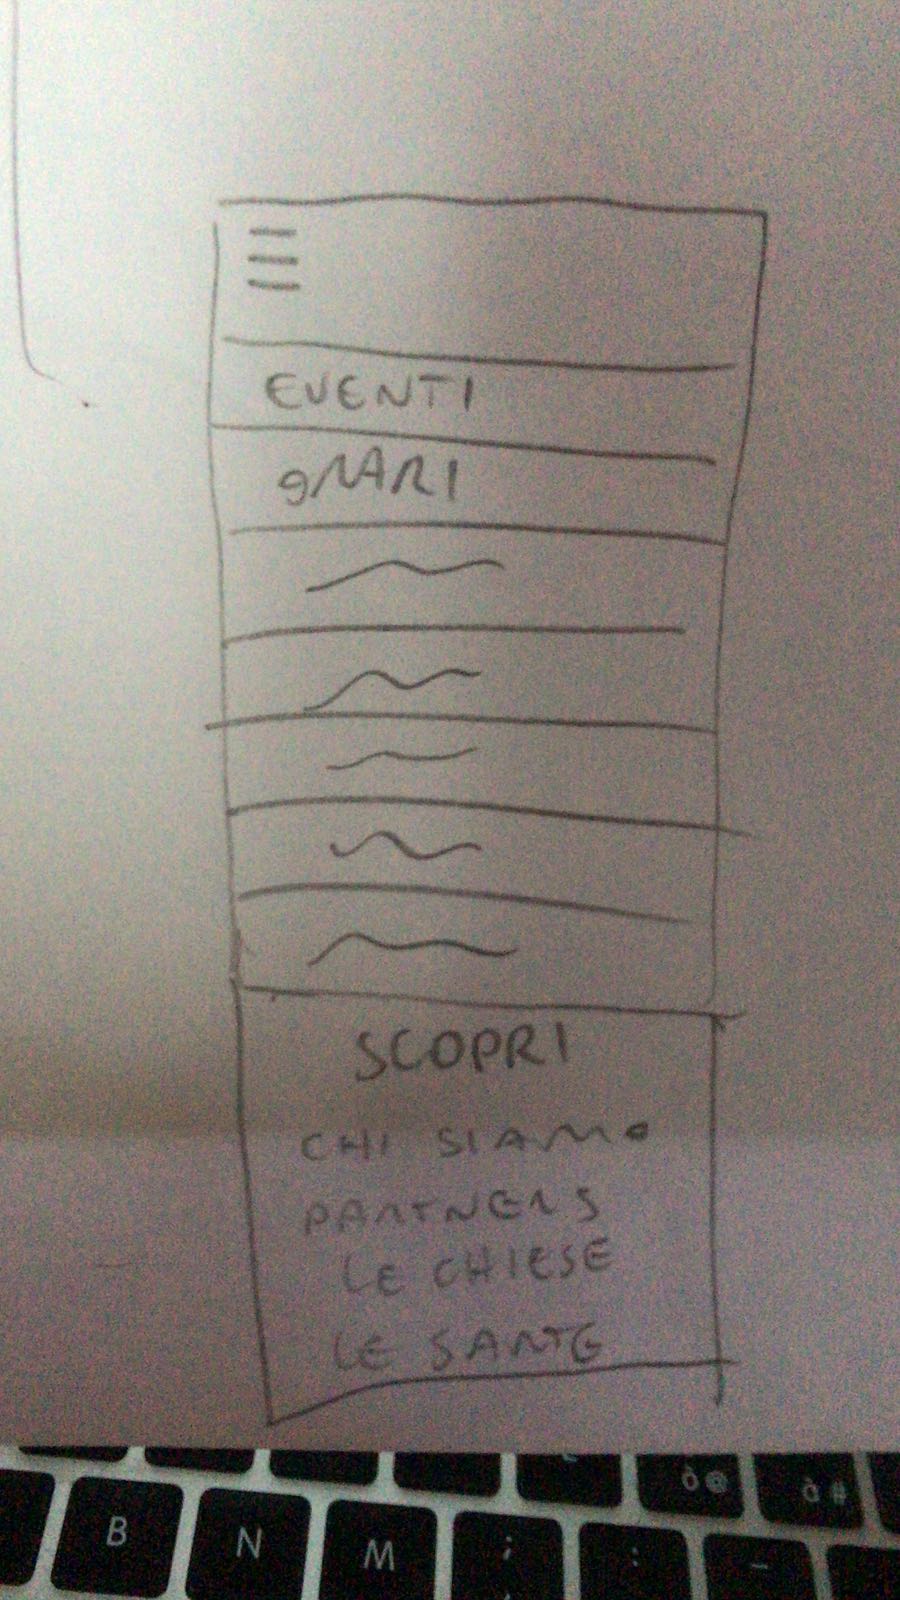 EVENTI
ORARI
SCOPRI
CHI SIAMO
PARTNERS
LE CHIESE
LE SANTE
B N M ; :
ò @
à #
, _